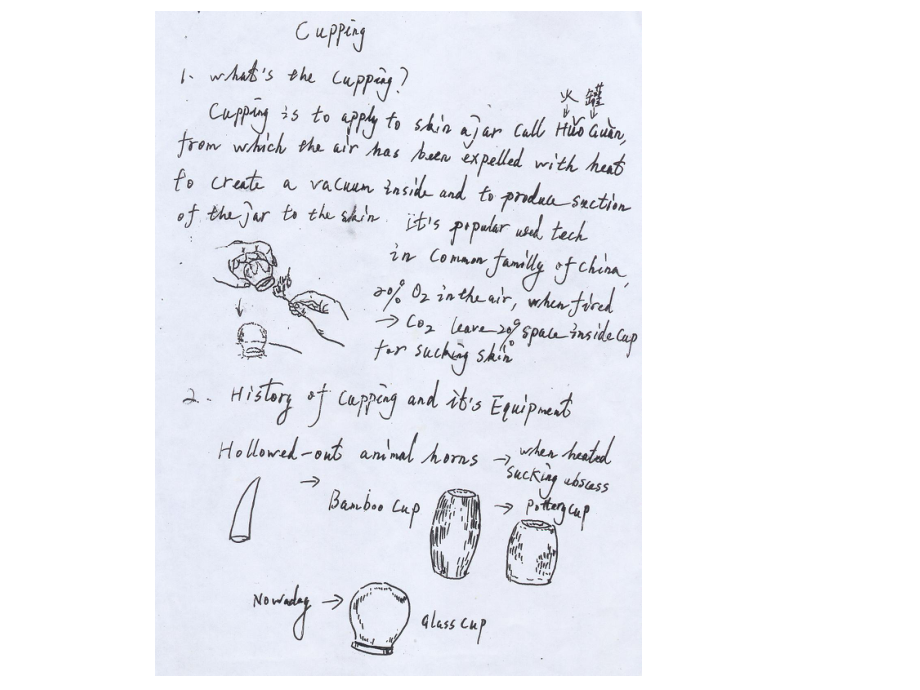 Cupping
1. What's the Cupping?
火罐
Cupping is to apply to skin a jar call HuǒGuàn,
from which the air has been expelled with heat
to create a vacuum inside and to produce suction
of the jar to the skin. it's popular used tech
in Common familly of China,
20% O2 in the air, when fired
→ CO2 leave 20% space inside cup
for sucking skin
2. History of Cupping and it's Equipment
Hollowed-out animal horns → when heated
sucking abscess
→ Bamboo Cup → Pottery cup
Nowaday → Glass Cup